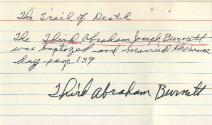 The Trail of Death
The Third Abraham Joseph Burnett
was baptized and married the same
day page 139
Third Abraham Burnett